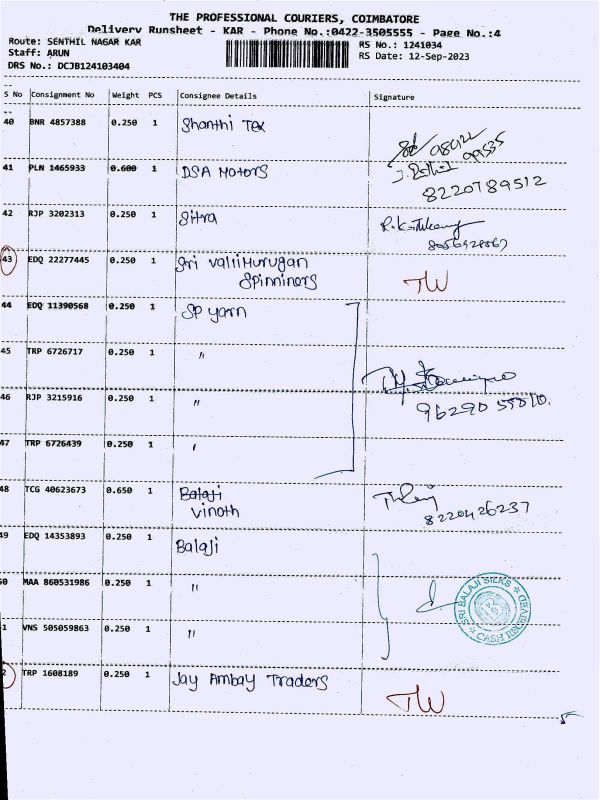 THE PROFESSIONAL COURIERS, COIMBATORE
Delivery Runsheet - KAR - Phone No.:0422-3505555 - Page No.:4
Route: SENTHIL NAGAR KAR
RS No.: 1241034
Staff: ARUN
RS Date: 12-Sep-2023
DRS No.: DCJB124103404
S No Consignment No Weight PCS Consignee Details Signature
40 BNR 4857388 0.250 1 Shanthi Tex
41 PLN 1465933 0.600 1 DSA Motors
8220789512
42 RJP 3202313 0.250 1 Sitra
43 EDQ 22277445 0.250 1 Sri ValliMurugan
Spinners
TW
44 EDQ 11390568 0.250 1 SP yarn
45 TRP 6726717 0.250 1 "
46 RJP 3215916 0.250 1 "
47 TRP 6726439 0.250 1 '
48 TCG 40623673 0.650 1 Balaji
Vinoth
8220426237
49 EDQ 14353893 0.250 1 Balaji
50 MAA 860531986 0.250 1 "
SRI BALAJI SILKS
CASH RECEIVED
1 VNS 505059863 0.250 1 "
2 TRP 1608189 0.250 1 Jay Ambay Traders
TW
5